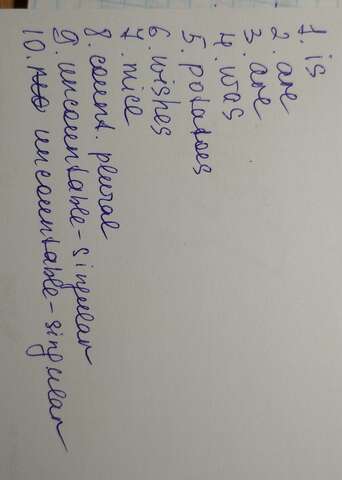 1. is
2. are
3. are
4. was
5. potatoes
6. wishes
7. mice
8. count. plural
9. uncountable-singular
10. uncountable-singular